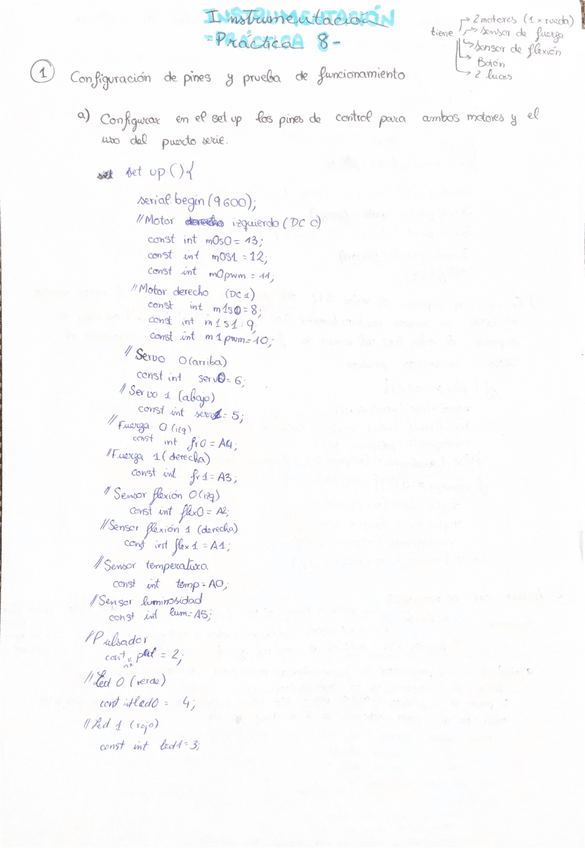 Instrumentación
- Práctica 8-
tiene
2 motores (1 = rueda)
sensor de fuerza
sensor de flexión
Botón
2 luces
1 Configuración de pines y prueba de funcionamiento
a) Configurar en el set up los pines de control para ambos motores y el
uso del puerto serie.
set up () {
serial.begin (9600);
// Motor izquierdo (DC 0)
const int m0s0 = 13;
const int m0s1 = 12;
const int m0pwm = 11;
// Motor derecho (DC 1)
const int m1s0 = 8;
const int m1s1 = 9,
const int m1pwm = 10;
// Servo 0 (arriba)
const int serv0 = 6;
// Servo 1 (abajo)
const int serv1 = 5;
// Fuerza 0 (izq)
const int fr0 = A4;
// Fuerza 1 (derecha)
const int fr1 = A3,
// Sensor flexión 0 (izq)
const int flex0 = A2;
// Sensor flexión 1 (derecha)
const int flex1 = A1;
// Sensor temperatura
const int temp = A0;
// Sensor luminosidad
const int lum = A5;
/ Pulsador
const int pul = 2;
// Led 0 (verde)
const int led0 = 4;
// Led 1 (rojo)
const int led1 = 3;